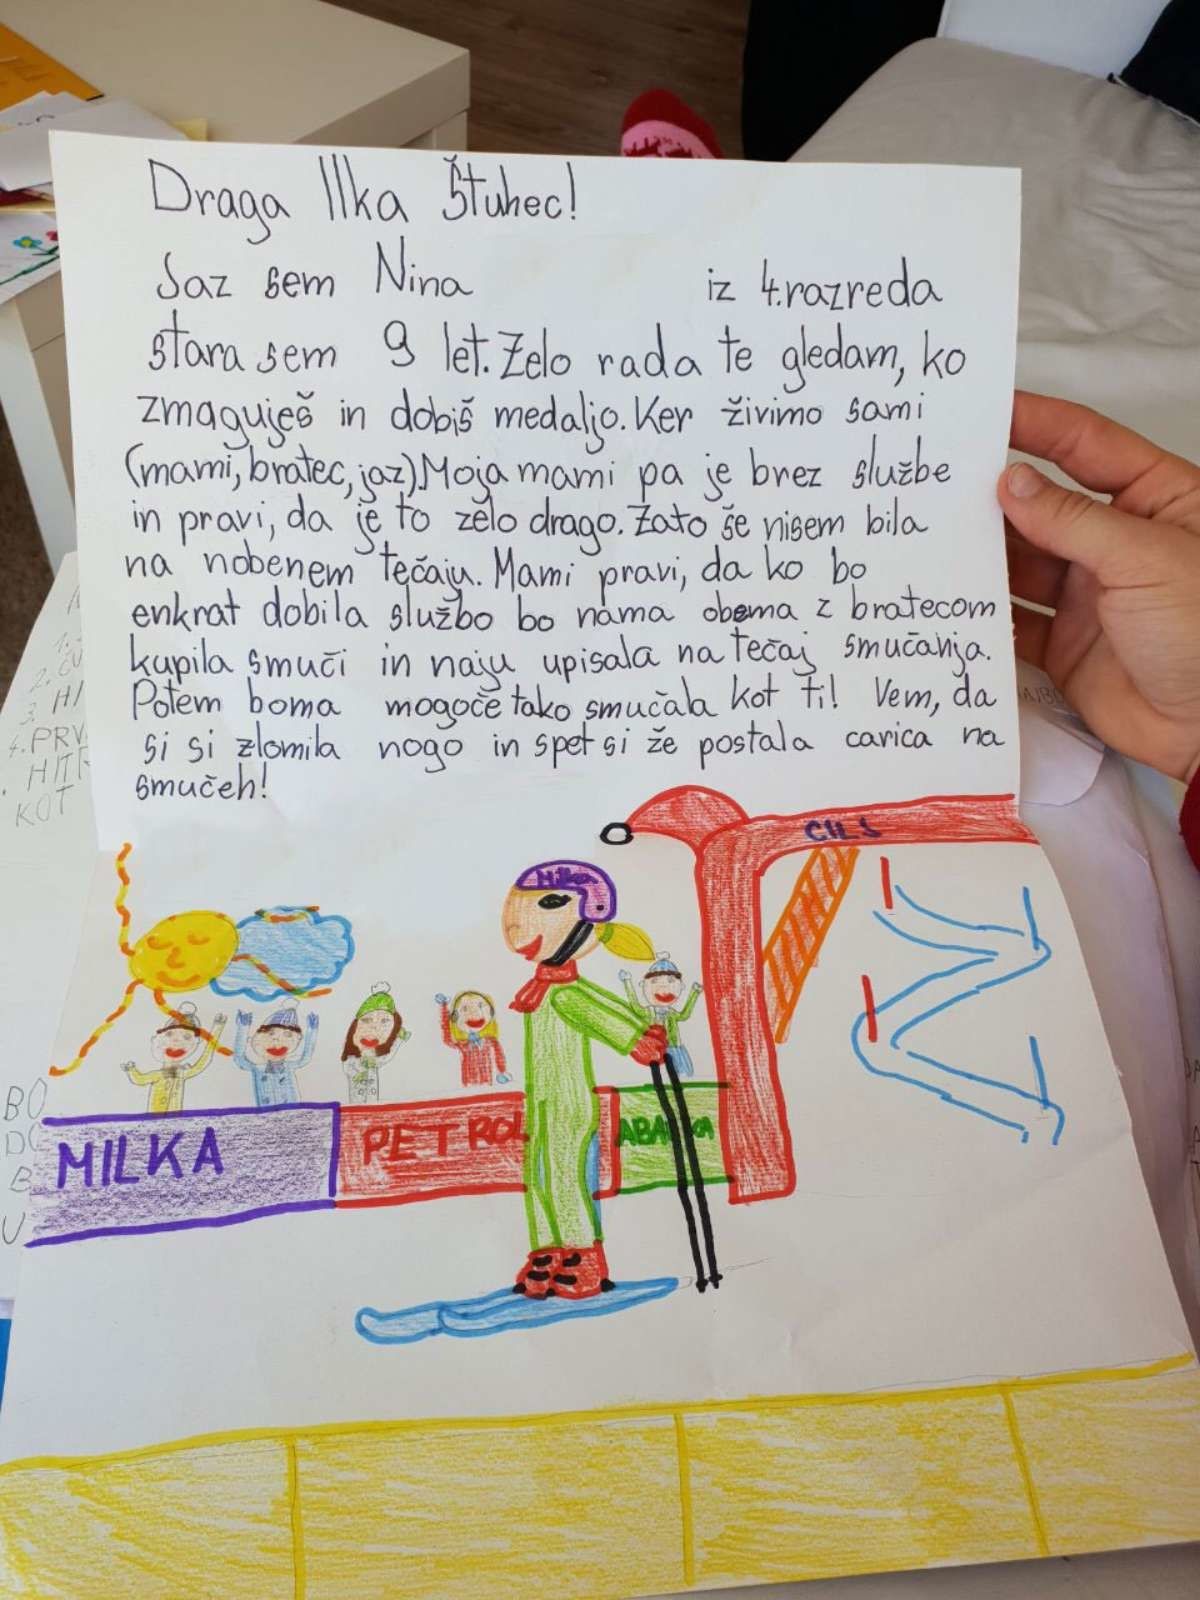 Draga Ilka Štuhec!
Jaz sem Nina iz 4.razreda
stara sem 9 let. Zelo rada te gledam, ko
zmaguješ in dobiš medaljo. Ker živimo sami
(mami, bratec, jaz). Moja mami pa je brez službe
in pravi, da je to zelo drago. Zato še nisem bila
na nobenem tečaju. Mami pravi, da ko bo
enkrat dobila službo bo nama obema z bratecom
kupila smuči in naju upisala na tečaj smučanja.
Potem boma mogoče tako smučala kot ti! Vem, da
si si zlomila nogo in spet si že postala carica na
smučeh!
Milka
MILKA
PETROL
1.
2.
3.
4. PRV
KOT
BO
B
U